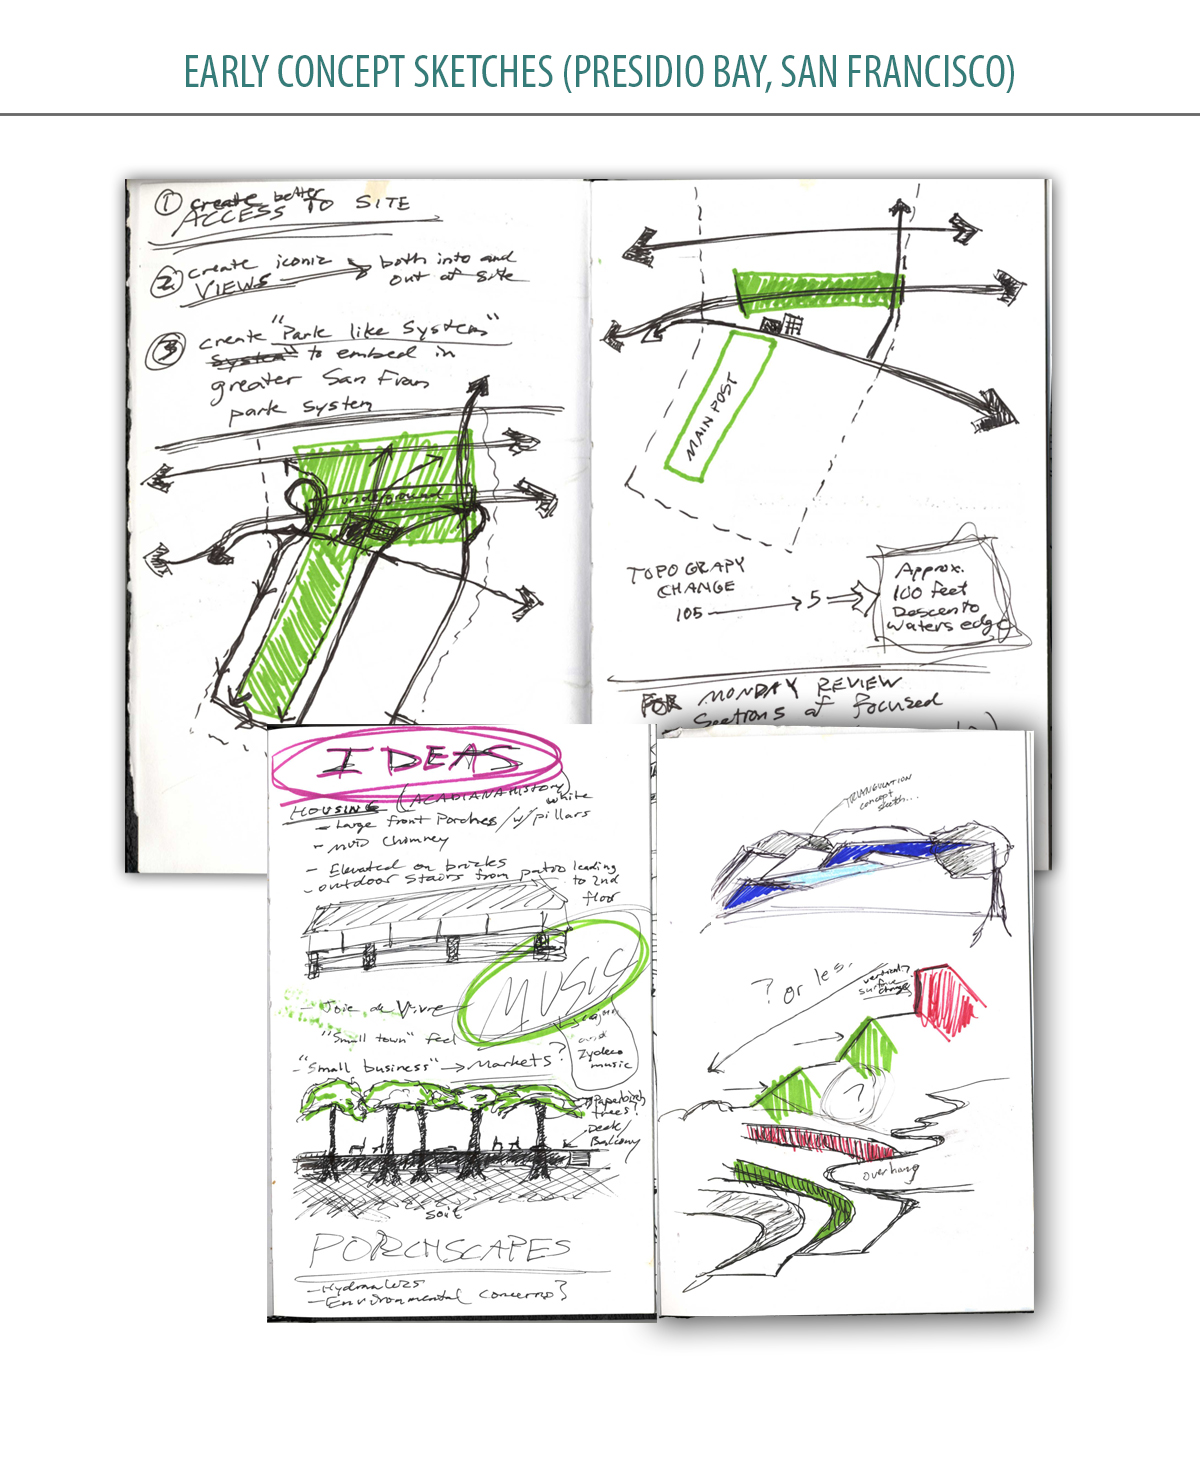 EARLY CONCEPT SKETCHES (PRESIDIO BAY, SAN FRANCISCO)
① create better
ACCESS TO SITE
② create iconic
VIEWS → both into and
out of site
③ create "Park like System"
to embed in
greater San Fran
park system
underground
MAIN POST
TOPOGRAPY
CHANGE
105 → 5 ⇒
Approx.
100 feet
Descent to
waters edge
FOR MONDAY REVIEW
Sections of focused
IDEAS
HOUSING (ACADIANA HISTORY)
- Large front Porches / w/ white pillars
- MUD Chimney
- Elevated on bricks
- outdoor stairs from patio leading
to 2nd
floor
MUSIC
- Joie de Vivre
"Small town" feel
cajun
and
Zydeco
music
- "Small business" → Markets?
trees?
Deck/
Balcony
soil
PORCHSCAPES
- Environmental concerns?
TRIANGULATION
concept
sketch...
? or les.
vertically
surface
changes
?
overhang